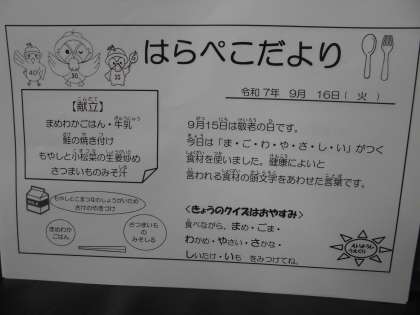 はらぺこだより
令和7年 9月 16日( 火 )
【献立】
まめわかごはん・牛乳
鮭の焼き付け
もやしと小松菜の生姜ゆめ
さつまいものみそ汁
9月15日は敬老の日です。
今日は「ま・ご・わ・や・さ・し・い」がつく
食材を使いました。健康によいと
言われる食材の頭文字をあわせた言葉です。
もやしとこまつなのしょうがいため
さけのやきづけ
まめわか
ごはん
さつまいも
の
みそしる
<きょうのクイズはおやすみ>
食べながら、まめ・ごま・
わかめ・やさい・さかな・
しいたけ・いも をみつけてね。